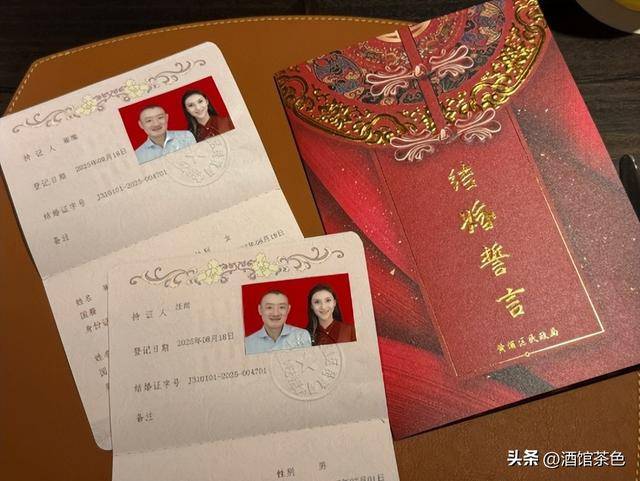 持证人
登记日期 2025年08月18日
结婚证字号 J310101-2025-004701
备注
性别 女
姓名
国籍
身份证
姓名
持证人 汪
登记日期 2025年08月18日
结婚证字号 J310101-2025-004701
备注
性别 男
结婚誓言
黄浦区民政局
头条 @酒馆茶色